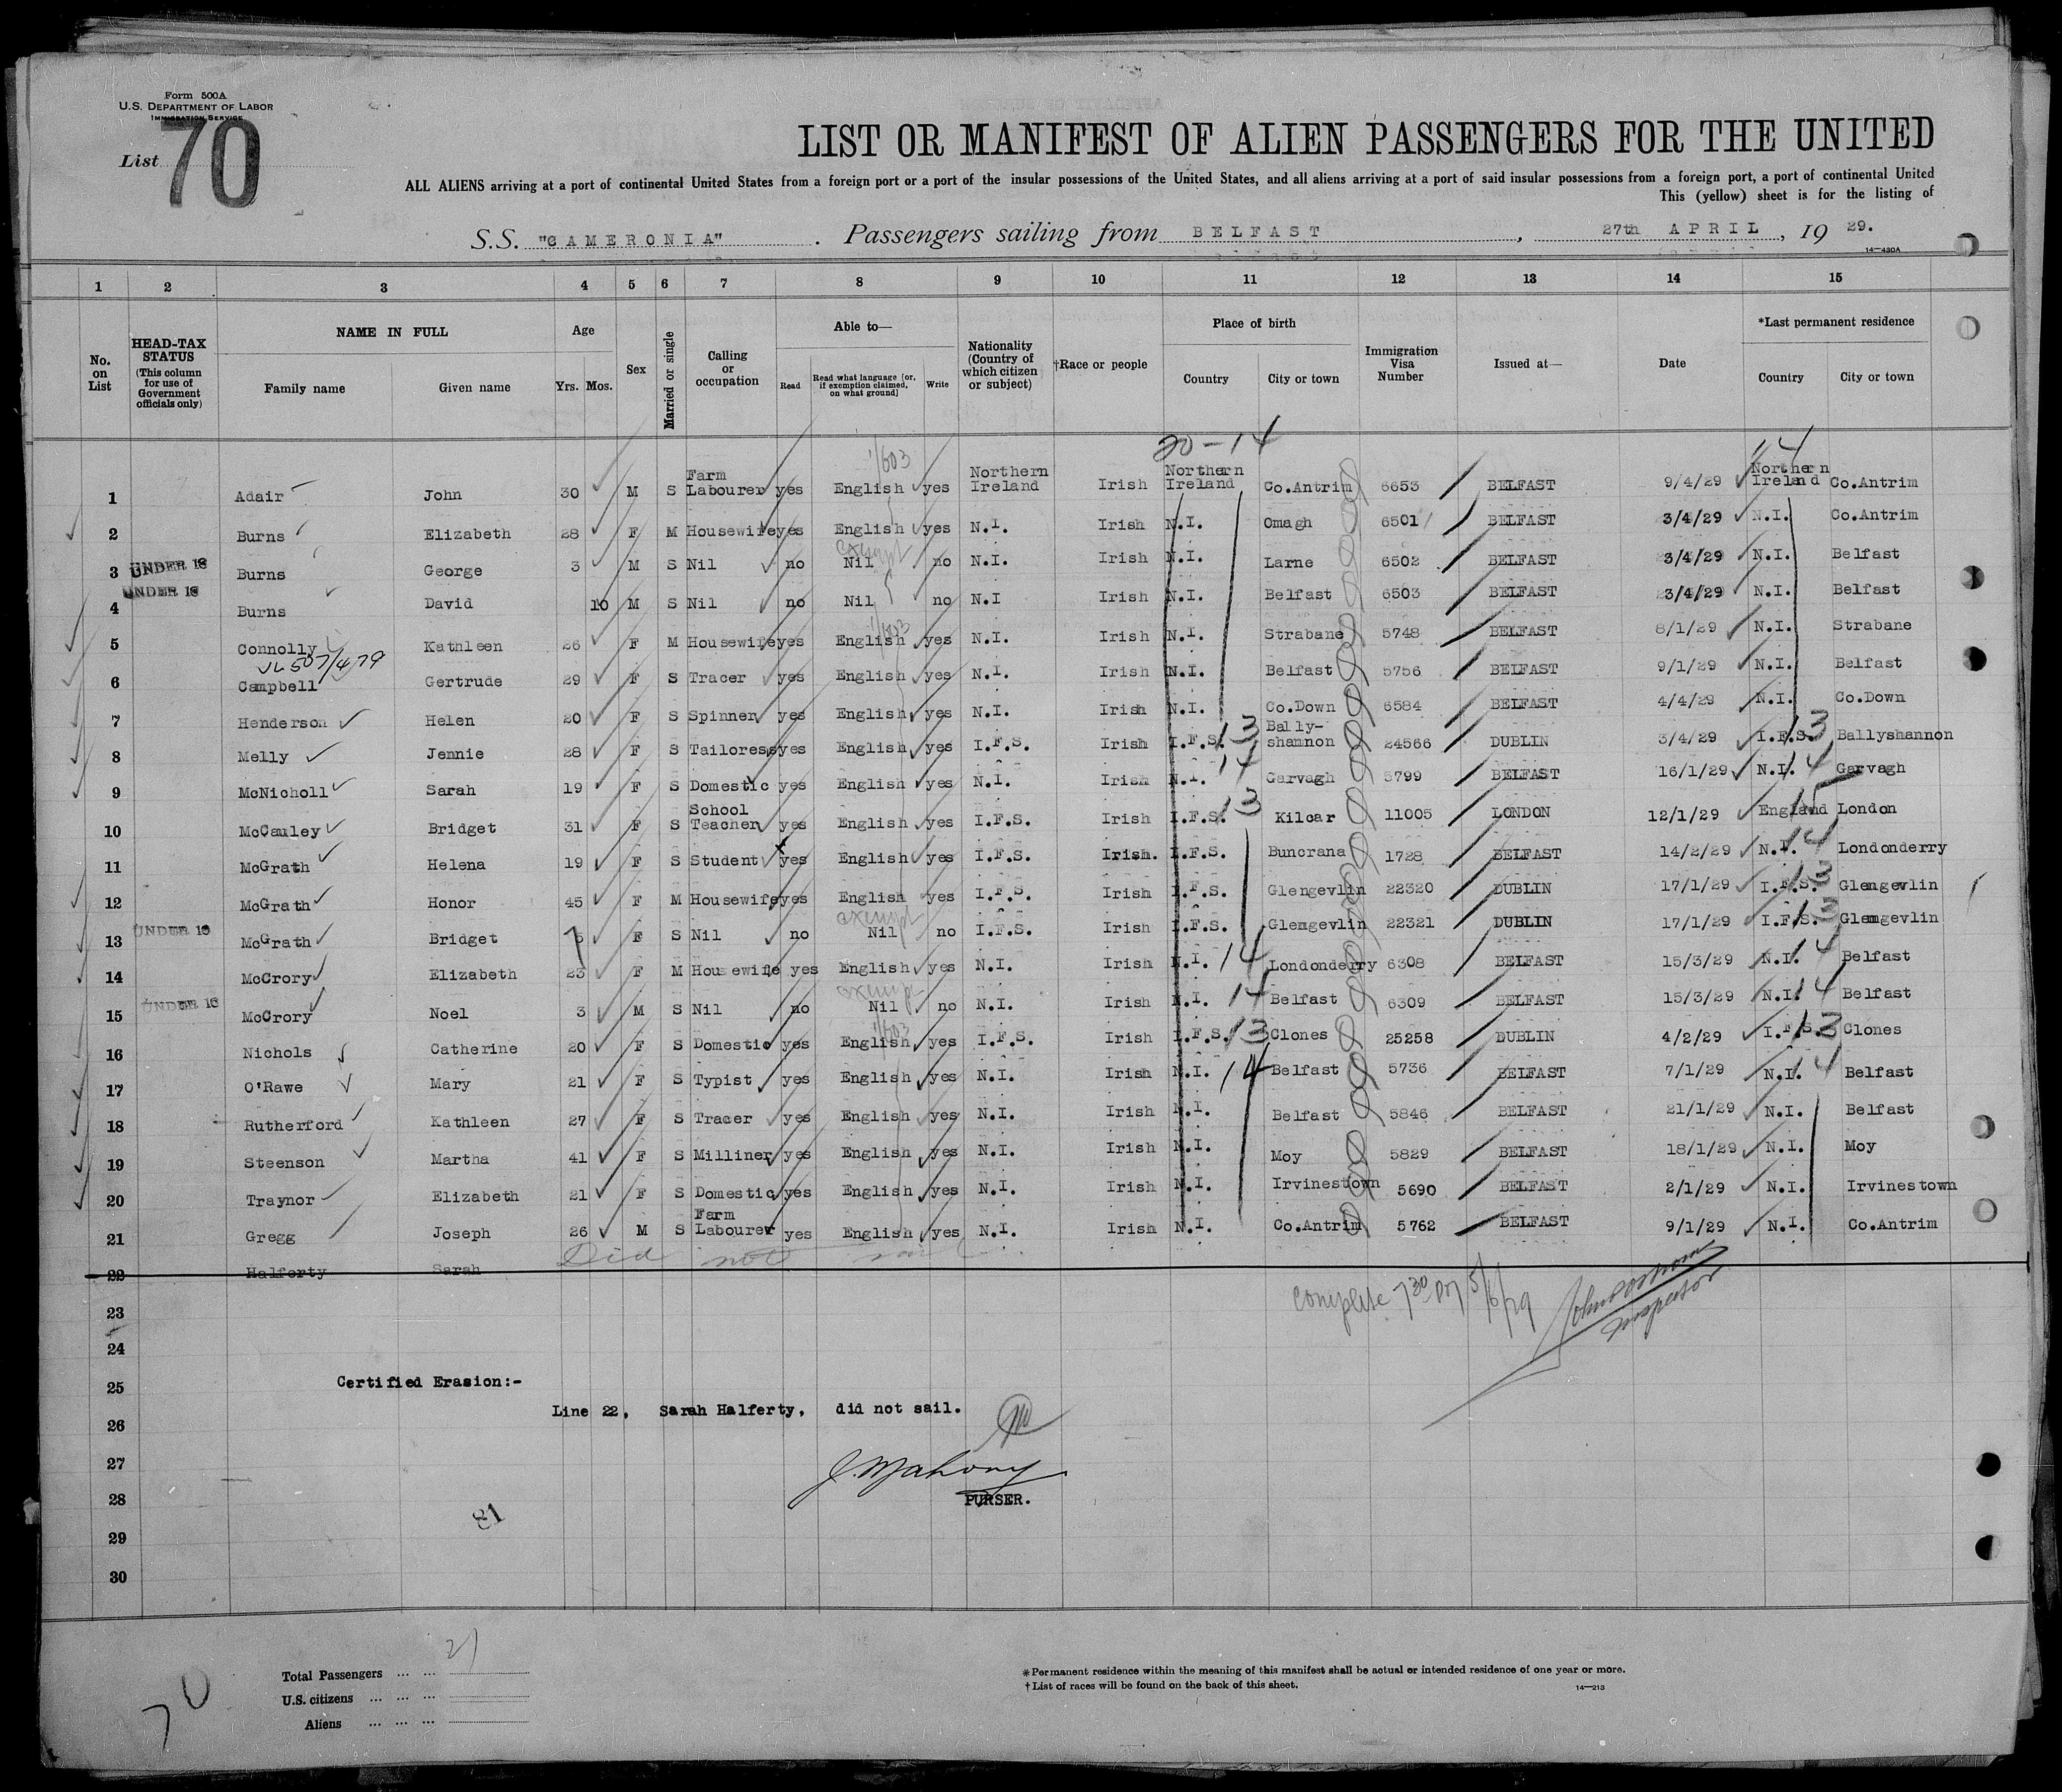 Form 500A
U.S. DEPARTMENT OF LABOR
IMMIGRATION SERVICE
List 70
LIST OR MANIFEST OF ALIEN PASSENGERS FOR THE UNITED
ALL ALIENS arriving at a port of continental United States from a foreign port or a port of the insular possessions of the United States, and all aliens arriving at a port of said insular possessions from a foreign port, a port of continental United
This (yellow) sheet is for the listing of
S.S. "CAMERONIA" . Passengers sailing from BELFAST , 27th APRIL , 19 29.
14—430A
1 2 3 4 5 6 7 8 9 10 11 12 13 14 15
No. on List
HEAD-TAX STATUS (This column for use of Government officials only)
NAME IN FULL
Family name Given name
Age
Yrs. Mos.
Sex
Married or single
Calling or occupation
Able to—
Read Read what language [or, if exemption claimed, on what ground] Write
Nationality (Country of which citizen or subject)
†Race or people
Place of birth
Country City or town
Immigration Visa Number
Issued at—
Date
*Last permanent residence
Country City or town
20-14 14
1 Adair John 30 M S Farm Labourer yes English yes Northern Ireland Irish Northern Ireland Co.Antrim 6653 BELFAST 9/4/29 Northern Ireland Co.Antrim
2 Burns Elizabeth 28 F M Housewife yes English yes N.I. Irish N.I. Omagh 6501 BELFAST 3/4/29 N.I. Co.Antrim
3 UNDER 16 Burns George 3 M S Nil no exempt Nil no N.I. Irish N.I. Larne 6502 BELFAST 3/4/29 N.I. Belfast
4 UNDER 16 Burns David 10 M S Nil no Nil no N.I Irish N.I. Belfast 6503 BELFAST 3/4/29 N.I. Belfast
5 Connolly Kathleen 26 F M Housewife yes English yes N.I. Irish N.I. Strabane 5748 BELFAST 8/1/29 N.I. Strabane
6 Campbell Gertrude 29 F S Tracer yes English yes N.I. Irish N.I. Belfast 5756 BELFAST 9/1/29 N.I. Belfast
7 Henderson Helen 20 F S Spinner yes English yes N.I. Irish N.I. Co.Down 6584 BELFAST 4/4/29 N.I. Co.Down
8 Melly Jennie 28 F S Tailoress yes English yes I.F.S. Irish I.F.S. 13 Bally-shannon 24566 DUBLIN 3/4/29 I.F.S. 13 Ballyshannon
9 McNicholl Sarah 19 F S Domestic yes English yes N.I. Irish N.I. 14 Garvagh 5799 BELFAST 16/1/29 N.I. 14 Garvagh
10 McCauley Bridget 31 F S School Teacher yes English yes I.F.S. Irish I.F.S. 13 Kilcar 11005 LONDON 12/1/29 England 15 London
11 McGrath Helena 19 F S Student yes English yes I.F.S. Irish. I.F.S. Buncrana 1728 BELFAST 14/2/29 N.I. 14 Londonderry
12 McGrath Honor 45 F M Housewife yes English yes I.F.S. Irish I.F.S. Glengevlin 22320 DUBLIN 17/1/29 I.F.S. 13 Glengevlin
13 UNDER 16 McGrath Bridget F S Nil no exempt Nil no I.F.S. Irish I.F.S. Glengevlin 22321 DUBLIN 17/1/29 I.F.S. 13 Glengevlin
14 McCrory Elizabeth 23 F M Housewife yes English yes N.I. Irish N.I. 14 Londonderry 6308 BELFAST 15/3/29 N.I. 14 Belfast
15 UNDER 16 McCrory Noel 3 M S Nil no exempt Nil no N.I. Irish N.I. 14 Belfast 6309 BELFAST 15/3/29 N.I. 14 Belfast
16 Nichols Catherine 20 F S Domestic yes English yes I.F.S. Irish I.F.S. 13 Clones 25258 DUBLIN 4/2/29 I.F.S. 13 Clones
17 O'Rawe Mary 21 F S Typist yes English yes N.I. Irish N.I. 14 Belfast 5736 BELFAST 7/1/29 N.I. 14 Belfast
18 Rutherford Kathleen 27 F S Tracer yes English yes N.I. Irish N.I. Belfast 5846 BELFAST 21/1/29 N.I. Belfast
19 Steenson Martha 41 F S Milliner yes English yes N.I. Irish N.I. Moy 5829 BELFAST 18/1/29 N.I. Moy
20 Traynor Elizabeth 21 F S Domestic yes English yes N.I. Irish N.I. Irvinestown 5690 BELFAST 2/1/29 N.I. Irvinestown
21 Gregg Joseph 26 M S Farm Labourer yes English yes N.I. Irish N.I. Co.Antrim 5762 BELFAST 9/1/29 N.I. Co.Antrim
22 Halferty Sarah Did not sail
23 Complete 7 30 PM 5/6/29 Inspector
24
25 Certified Erasion:-
Line 22, Sarah Halferty, did not sail.
26
27 J. Mahony
28 PURSER.
81
29
30
Total Passengers ... ... 21
U.S. citizens ... ... ...
Aliens ... ... ...
70
*Permanent residence within the meaning of this manifest shall be actual or intended residence of one year or more.
†List of races will be found on the back of this sheet.
14—213